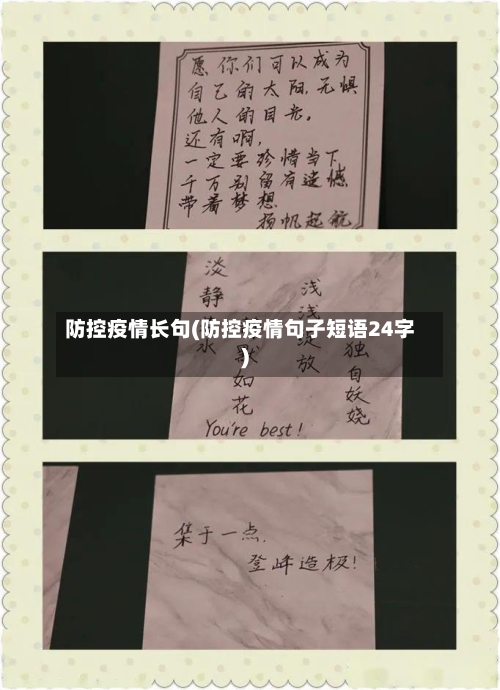 愿你们可以成为
自己的太阳,无惧
他人的目光。
还有啊,
一定要珍惜当下
千万别留有遗憾
带着梦想
扬帆起航
防控疫情长句(防控疫情句子短语24字
)
淡静
水
如花
浅浅绽放
独自妖娆
You're best!
集于一点,
登峰造极!